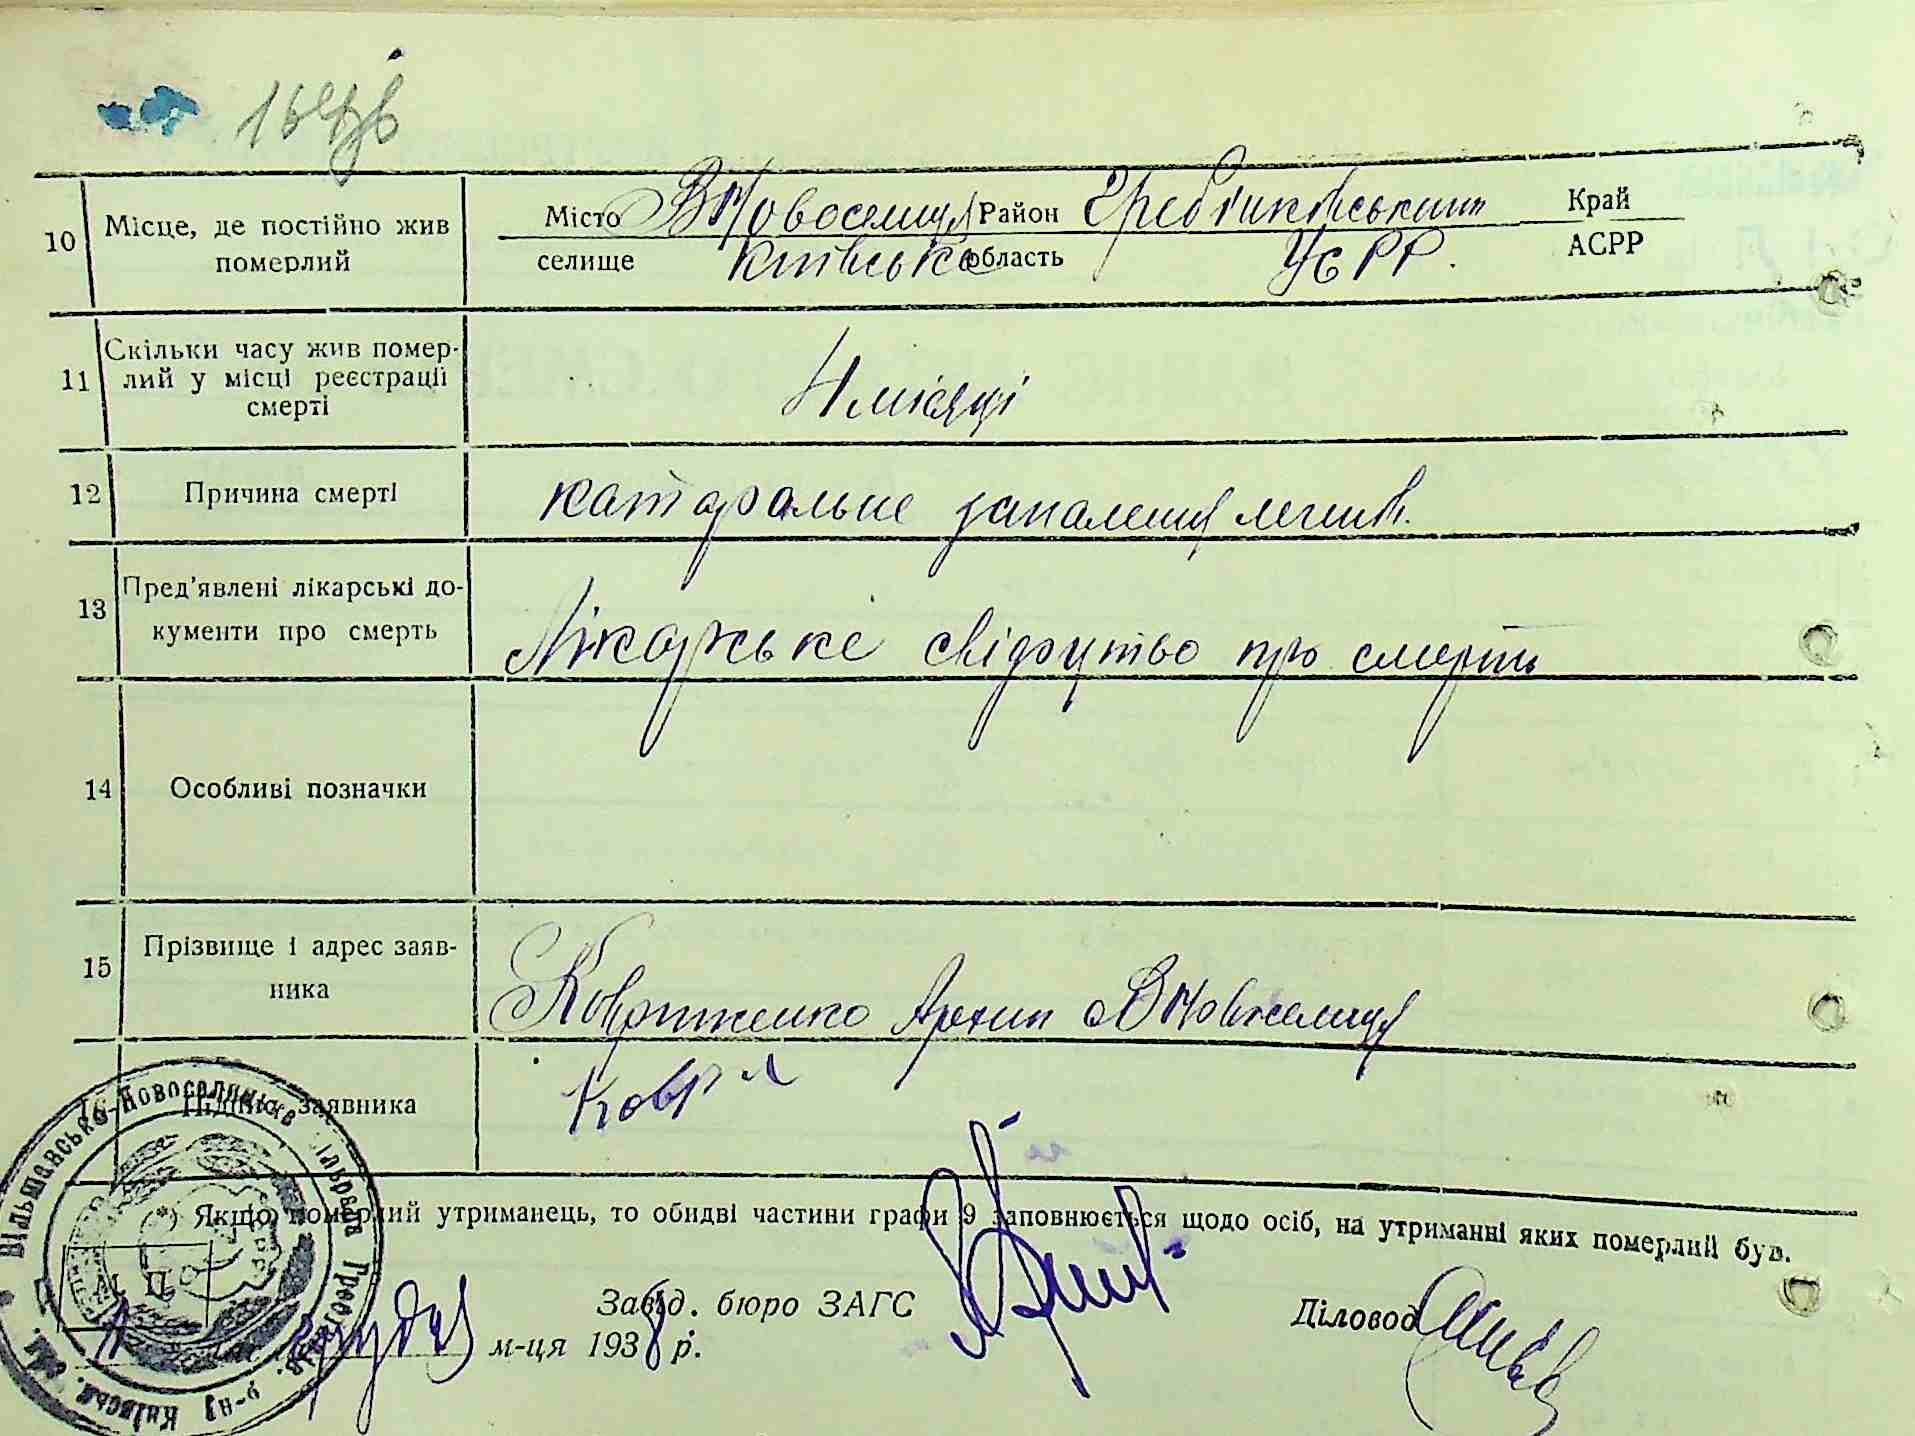 10 Місце, де постійно жив померлий
Місто селище В Новоселиця Район Гребінківський Край
Київська область УСРР. АСРР
11 Скільки часу жив помер-
лий у місці реєстрації
смерті
4 місяці
12 Причина смерті
катаральне запалення легенів.
13 Пред'явлені лікарські до-
кументи про смерть
Лікарське свідоцтво про смерть
14 Особливі позначки
15 Прізвище і адрес заяв-
ника
Архип с В Новоселиця
Підпис заявника
Вільшансько-Новоселицька сільрада Гребінк. р-ну Київськ. обл.
Якщо померлий утриманець, то обидві частини графи 9 заповнюється щодо осіб, на утриманні яких померлий був.
М. П.
Завід. бюро ЗАГС
Діловод
грудня м-ця 1938 р.